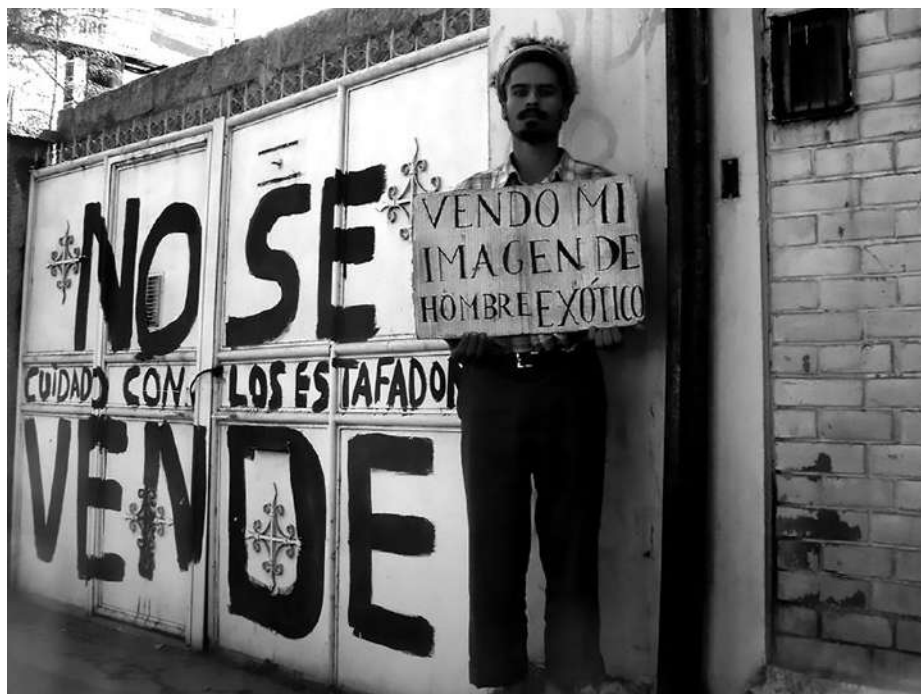 NO SE
CUIDADO CON LOS ESTAFADOR
VENDE
VENDO MI
IMAGEN DE
HOMBRE EXÓTICO